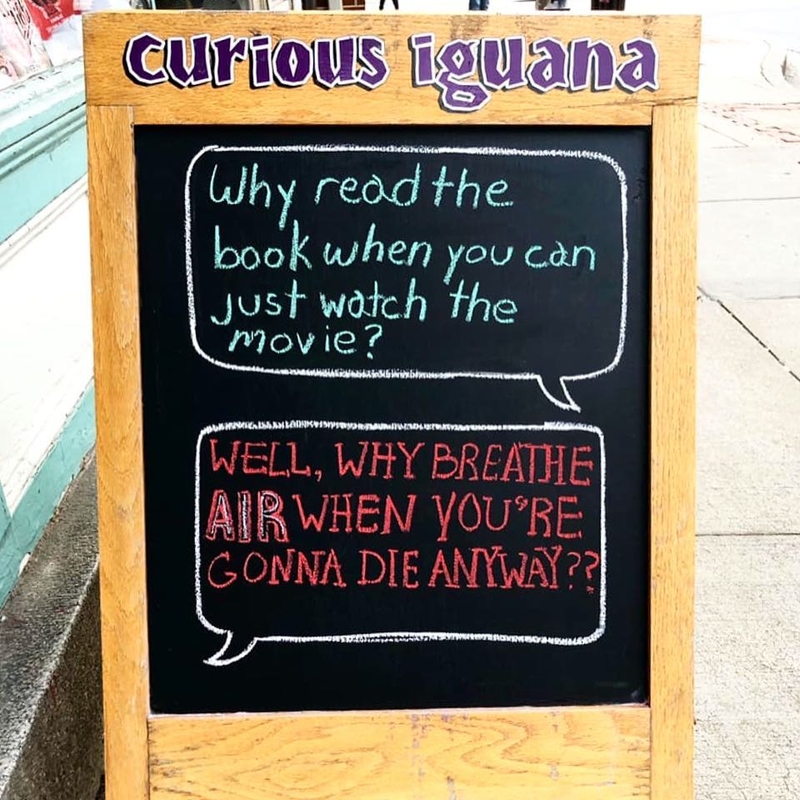 curious iguana
Why read the
book when you can
just watch the
movie?
WELL, WHY BREATHE
AIR WHEN YOU'RE
GONNA DIE ANYWAY??